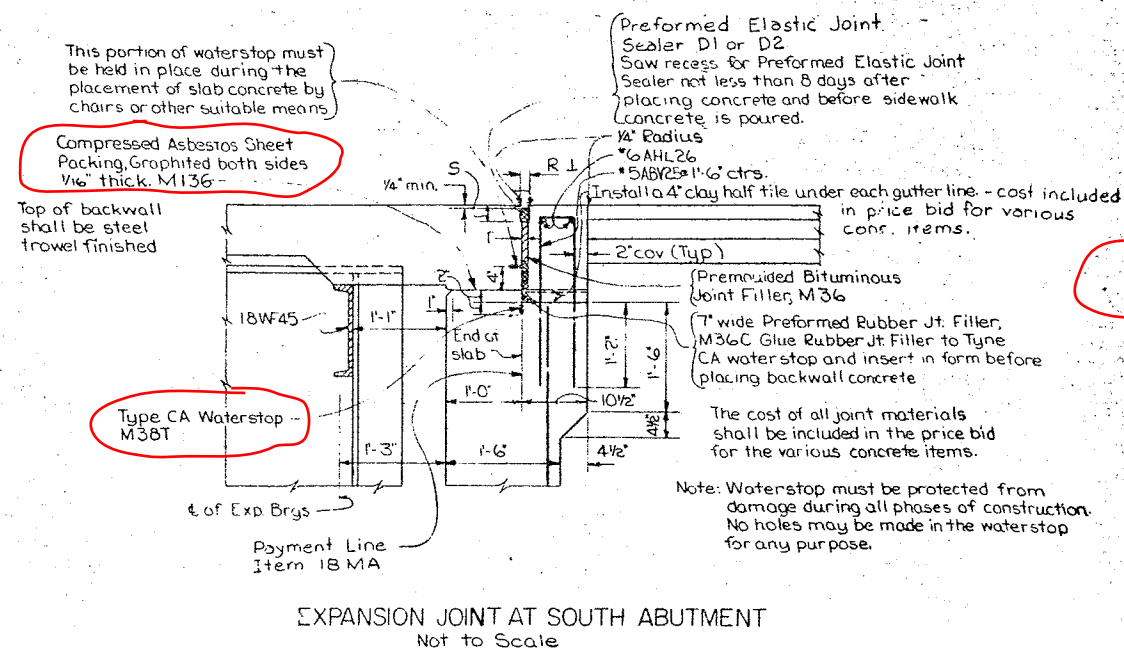 This portion of waterstop must
be held in place during the
placement of slab concrete by
chairs or other suitable means
Compressed Asbestos Sheet
Packing, Graphited both sides
1/16" thick. M136
Top of backwall
shall be steel
trowel finished
Preformed Elastic Joint
Sealer D1 or D2
Saw recess for Preformed Elastic Joint
Sealer not less than 8 days after
placing concrete and before sidewalk
concrete is poured.
1/4" Radius
*6AHL26
*5ABV25@1'-6" ctrs.
Install a 4" clay half tile under each gutter line. - cost included
in price bid for various
conc. items.
S
R
1/4" min.
2" cov (Typ)
Premoulded Bituminous
Joint Filler, M36
7" wide Preformed Rubber Jt. Filler,
M36C Glue Rubber Jt. Filler to Type
CA waterstop and insert in form before
placing backwall concrete
4"
2"
1"
18WF45
1'-1"
End of
slab
1'-2"
1'-6"
1'-0"
10 1/2"
4 1/2"
Type CA Waterstop
M38T
The cost of all joint materials
shall be included in the price bid
for the various concrete items.
1'-3"
1'-6"
4 1/2"
Note: Waterstop must be protected from
damage during all phases of construction.
No holes may be made in the waterstop
for any purpose.
℄ of Exp. Brgs
Payment Line
Item 18 MA
EXPANSION JOINT AT SOUTH ABUTMENT
Not to Scale